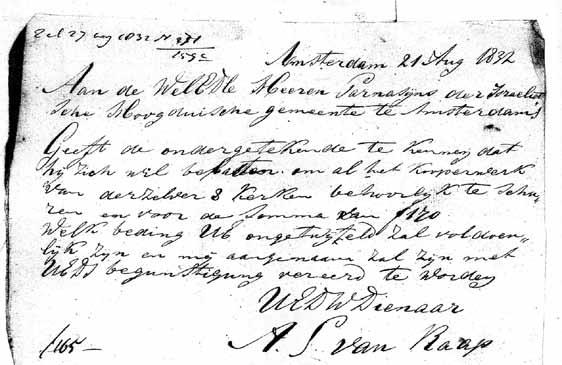 Zel 27 aug 1832 N 371
1592
Amsterdam 21 Aug 1832
Aan de WelEDle Heeren Parnasijns der Israelit
sche Hoogduische gemeente te Amsterdam's
Geeft de ondergetekende te kennen dat
hij zich wel om al het koperwerk
van derzelver 3 Kerken behoorlijk te schu,
ren en voor de somma van
Welk beding UE ongetwijfeld zal voldoen„
lijk zijn en mij aangenaam zal zijn met
UEDs begunstiging vereerd te worden
UEDWDienaar
A. S. van Raap
f165 —